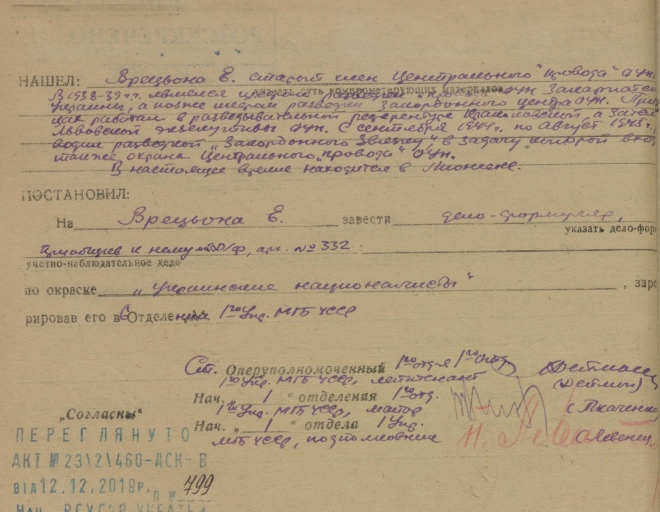 РОЗСЕКРЕЧЕНО
НАШЕЛ: Врецьона Е. старый член Центрального "провода" ОУН.
В 1938-39 г.г. являлся шефом разведки ОУН Закарпатской
указать суть компрометирующих материалов
Украины, а позже шефом разведки Закордонного центра ОУН.
как работал в разведывательной референтуре Краковской, а затем
Львовской экзекутивы ОУН. С сентября 1944 г. по август 1945 г.
водил разведкой "Закордонного в задачу которой
также охрана Центрального "провода" ОУН.
В настоящее время находится в Мюнхене.
ПОСТАНОВИЛ:
На Врецьона Е. завести дело-формуляр,
указать дело-фор
к нему арх. № 332.
учетно-наблюдательное дело
по окраске "Украинские националисты", заре
рировав его в Отделе 1го Упр. МГБ УССР
Ст. Оперуполномоченный 1го отд-я 1го отд.
1го Упр. МГБ УССР, лейтенант (Дейман)
Нач. 1 отделения 1го отд.
1го Упр. МГБ УССР, майор (Ткаченко)
"Согласны" Нач. 1 отдела 1 Упр.
МГБ УССР, подполковник
ПЕРЕГЛЯНУТО
АКТ № 23\2\460-ДСК-В
від 12.12.2019р. п № 799